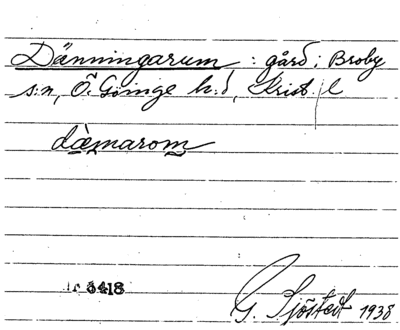 Dänningarum : gård i Broby
s:n, Ö. Göinge h:d, Krist. l
dänarom
3418
G. Sjöstedt 1938